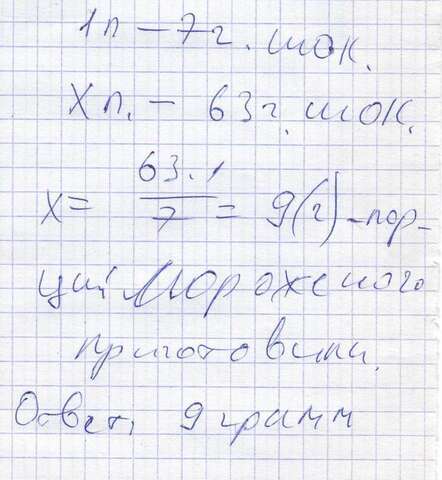 1п – 7г. шок.
Xп. – 63г. шок.
x = 63·1/7 = 9(г) – пор-
ций мороженого
приготовили.
Ответ, 9 грамм